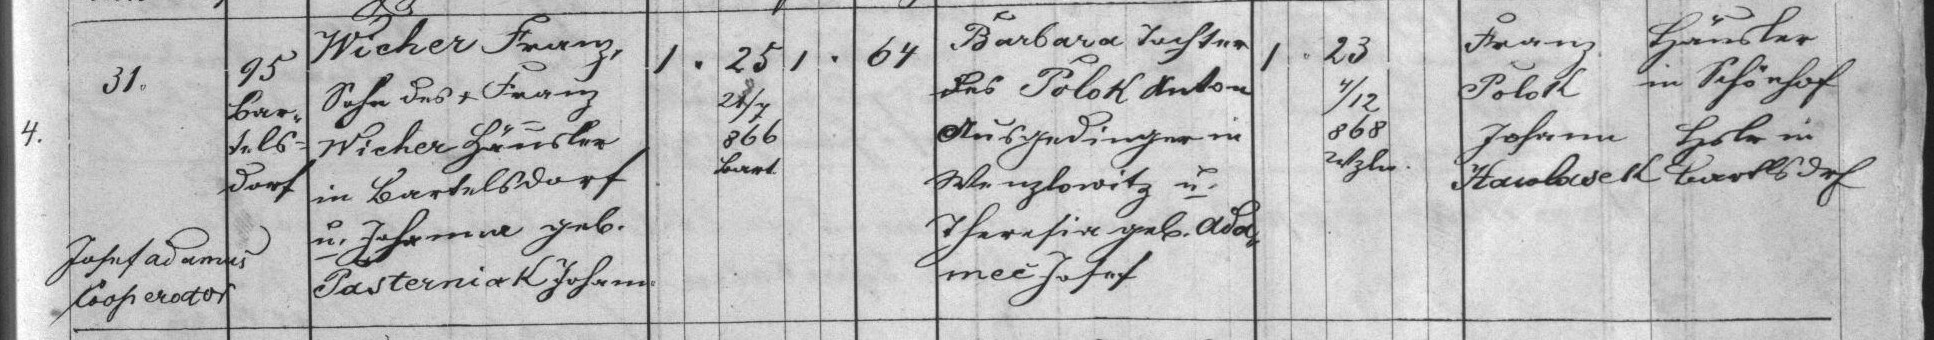 4.
31.
Josef Adamus
Cooperator
95
Bar-
tels-
dorf
Wicher Franz,
Sohn des + Franz
Wicher Häusler
in Bartelsdorf
u. Johanna geb.
Pasterniak Johann
1 . 25
21/7
866
Bart
1 . 64
Barbara Tochter
des Polok Anton
Ausgedinger in
Wenzlowitz u.
Theresia geb. Ada-
meč Josef
1 . 23
4/12
868
Wzlw.
Franz Häusler
Polok in Schönhof
Johann Hslr in
Hawlasek Bartlsdrf